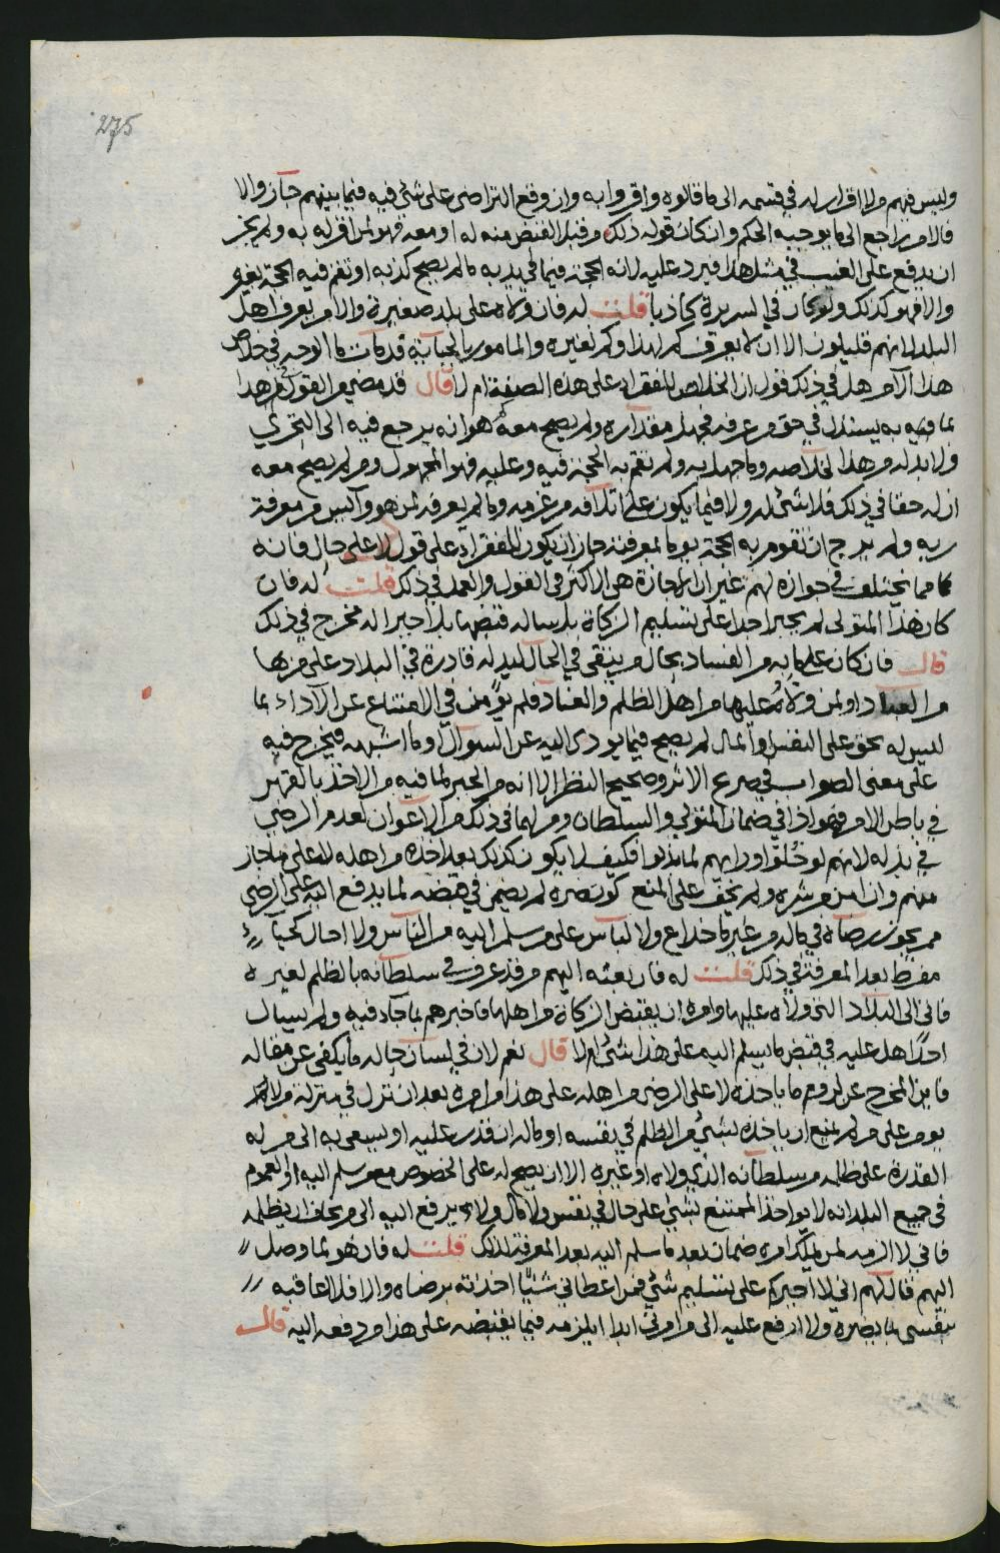 275
وليس فهم ولا اقرار له في قسمه الى ما قالوه واقروا به وان وقع التراضي على شئ فيه فيما بينهم جاز والا
فالامر راجع الى ما يوجبه الحكم وان كان قوله ذلك من قبل القبض منه له او معه فهو لمن اقر له به ولم يجز
ان يدفع على الغيب في مثل هذا فيرد عليه لانه الحجة فيما في يديه ما لم يصح كذبه او تقم فيه الحجة بغيره
والا فهو كذلك ولو كان في السريرة كاذبا قلت له فان ولاه على بلد صغيرة والامر يعرف اهل
البلد انهم قليلون الا ان لا يعرف كم لهذا وكم لغيره والمامور بالجباية قد مات ما الوجه في خلاص
هذا الآمر هل في ذلك قول ان الخلاص للفقراء على هذه الصفة ام لا قال قد مضى من القول في هذا
بما فيه به يستدل في حق من عرفه فجهل مقداره ولم يصح معه هو انه يرجع فيه الى التحري
ولا بد له من هذا لخلاصه وما جهل به ولم تقم به الحجة فيه وعليه فهو المجهول ومن لم يصح معه
ان له حقا في ذلك فلا شئ له ولا فيما يكون على اتلافه من غرمه وما لم يعرفه لمن هو وآيس من معرفة
ربه ولم يرج ان تقوم به الحجة يوما بمعرفته جاز ان يكون للفقراء على قول لا على حال فانه
مما يختلف في جوازه لهم غير ان الاجازة هي الاكثر في القول والعمل في ذلك قلت له فان
كان هذا المتولي لم يجبر احدا على تسليم الزكاة بلسانه قبضها بلا جبر اله مخرج في ذلك
قال فان كان على ما به من الفساد بحال من يتقى في الحال ليد له قادرة في البلاد على من بها
من العباد او لمن ولاه عليها من اهل الظلم والعناد فلم يؤمن في الامتناع عن الآداء لما
ليس له بحق على النفس او المال لم يصح فيما يودى اليه عن السوال او ما اشبهه فيخرج فيه
على معنى الصواب في صريح الاثر وصحيح النظر الا انه من الجبر لما فيه من الاخذ بالقهر
في باطن الامر فهو اذا في ضمان المتولي والسلطان ومن لهما في ذلك من الاعوان لعدم الرضى
في بذله لانهم لو خلوا ورايهم لما بذلوا فكيف لا يكون كذلك بعد اخذه من اهله لا على ما جاز
منهم وان امن من شره ولم يخف على المنع كون ضره لم يضمن في قبضه لما يدفع اليه على الرضى
ممن يجوز رضاه في ماله من غير ما خداع ولا لباس على من سلم اليه من الناس ولا احال لحياء
مفرط بعد المعرفة في ذلك قلت له فان بعثه اليهم من قد عرف في سلطانه بالظلم لغيره
فاتى الى البلاد التي ولاه عليها وامره ان يقبض الزكاة من اهلها فاخبرهم بما جاء فيه ولم يسال
احدا هل عليه في قبض ما يسلم اليه على هذا شئ ام لا قال نعم لان في لسان حاله ما يكفي عن مقاله
فاين المخرج عن لزوم ما ياخذه لا على الرضى من اهله على هذا من امره بعد ان نزل في منزلة من لا
يومن على من لم يمنع ان ياخذه بشئ من الظلم في نفسه او ماله ان قدر عليه او يسعى به الى من له
القدرة على ظلمه من سلطانه الذي ولاه او غيره الا ان يصح له على الخصوص مع من سلم اليه او العموم
في جميع البلد انه لا يواخذ الممتنع بشئ على حال في نفس ولا مال ولا يرفع اليه الى من يخاف ان يظلمه
فاني لا الزمه لمن يملك امره ضمان بعد ما سلم اليه بعد المعرفة لذلك قلت له فان هو لما وصل
اليهم قال لهم اني لا اجبركم على تسليم شئ فمن اعطاني شيئا اخذته برضاه والا فلا اعاقبه
بنفسي بما يضره ولا ارفع عليه الى من امرني ابدا ايلزمه فيما يقبضه على هذا من دفعه اليه قال